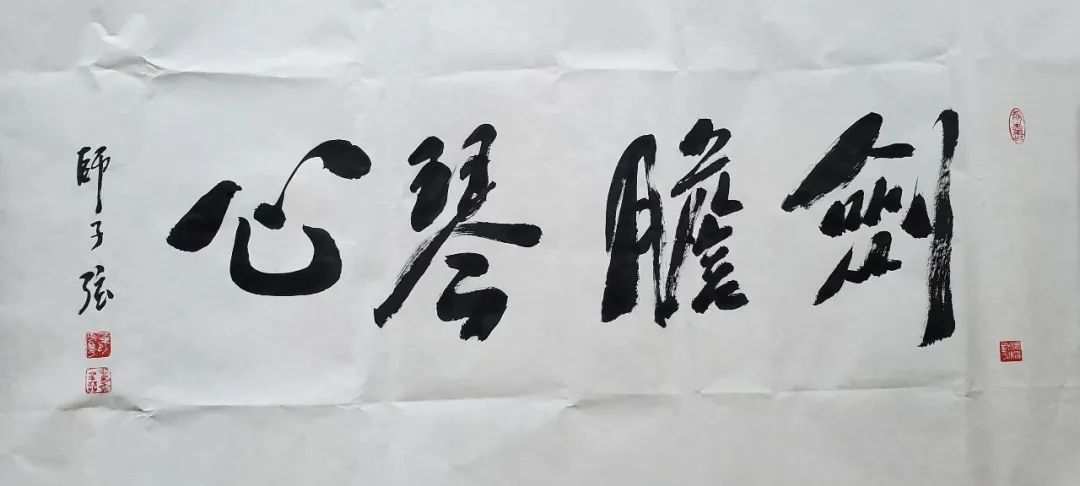 劍膽琴心
師子弦